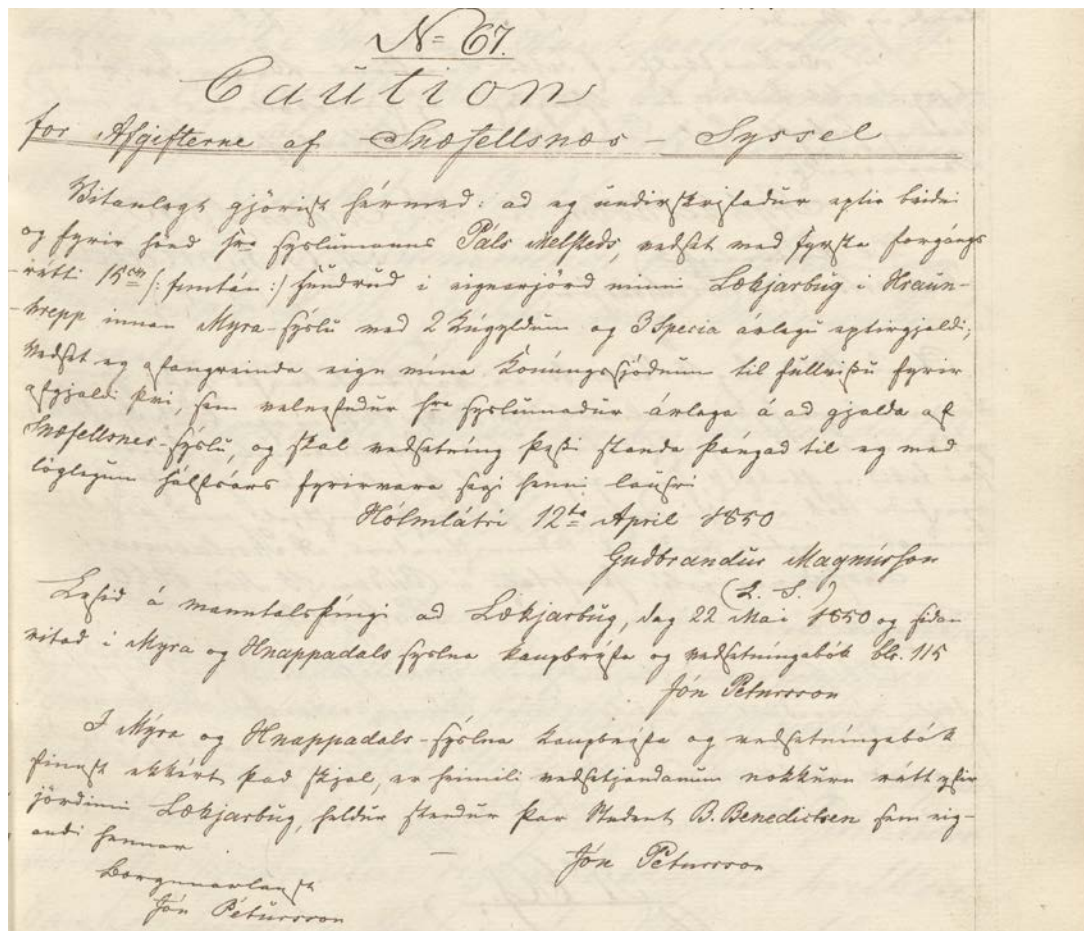 No 67.
Caution
for Afgifterne af Snæfellsnæs - Syssel
Vitanlegt gjörist hérmed: ad eg undirskrifadur eptir beidni
og fyrir hönd hra sýslumanns Páls Melsteds, vedset med fyrsta forgángs
-rétti 15 cn /: fimtán :/ hundrud i eignarjörd minni Lækjarbug i Hraun-
-hrepp innan Myra-sýslu med 2 kúgyldum og 3 Specia árlegu eptirgjaldi;
Vedset eg ofangreinda eign mína Konúngssjódnum til fullvissu fyrir
afgjaldi því, sem velnefndur hra sýslumadur árlega á ad gjalda af
Snæfellsnes-sýslu, og skal vedsetníng þessi standa þángad til eg med
löglegum hálfsárs fyrirvara segi henni lausri
Hólmlátri 12ta April 1850
Gudbrandur Magnússon
(L. S.)
Lesid á manntalsþíngi ad Lækjarbug, dag 22 Mai 1850 og sidan
ritad i Myra og Hnappadals sýslna kaupbréfa og vedsetníngabók bls. 115
Jón Petursson
I Mýra og Hnappadals-sýslna kaupbréfa og vedsetníngabók
finnst ekkért þad skjal, er heimili vedsetjandanum nokkurn rétt yfir
jördinni Lækjarbug, heldur stendur þar Student B. Benedictsen sem eig-
andi hennar
Jón Petursson
Borgunarlaust
Jón Pétursson